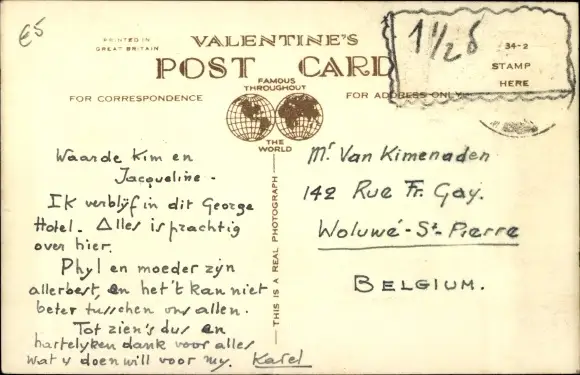 €5
PRINTED IN
GREAT BRITAIN
VALENTINE'S
POST CARD
FAMOUS
THROUGHOUT
THE
WORLD
FOR CORRESPONDENCE
FOR ADDRESS ONLY
1 1/2 d
34-2
STAMP
HERE
Waarde Kim en
Jacqueline -
IK verblijf in dit George
Hotel. Alles is prachtig
over hier.
Phyl en moeder zijn
allerbest, en het 't kan niet
beter tusschen ons allen.
Tot zien's dus en
hartelyken dank voor alles
wat u doen will voor my. Karel
THIS IS A REAL PHOTOGRAPH
Mr Van Kimenaden
142 Rue Fr. Gay.
Woluwé-St-Pierre
BELGIUM.